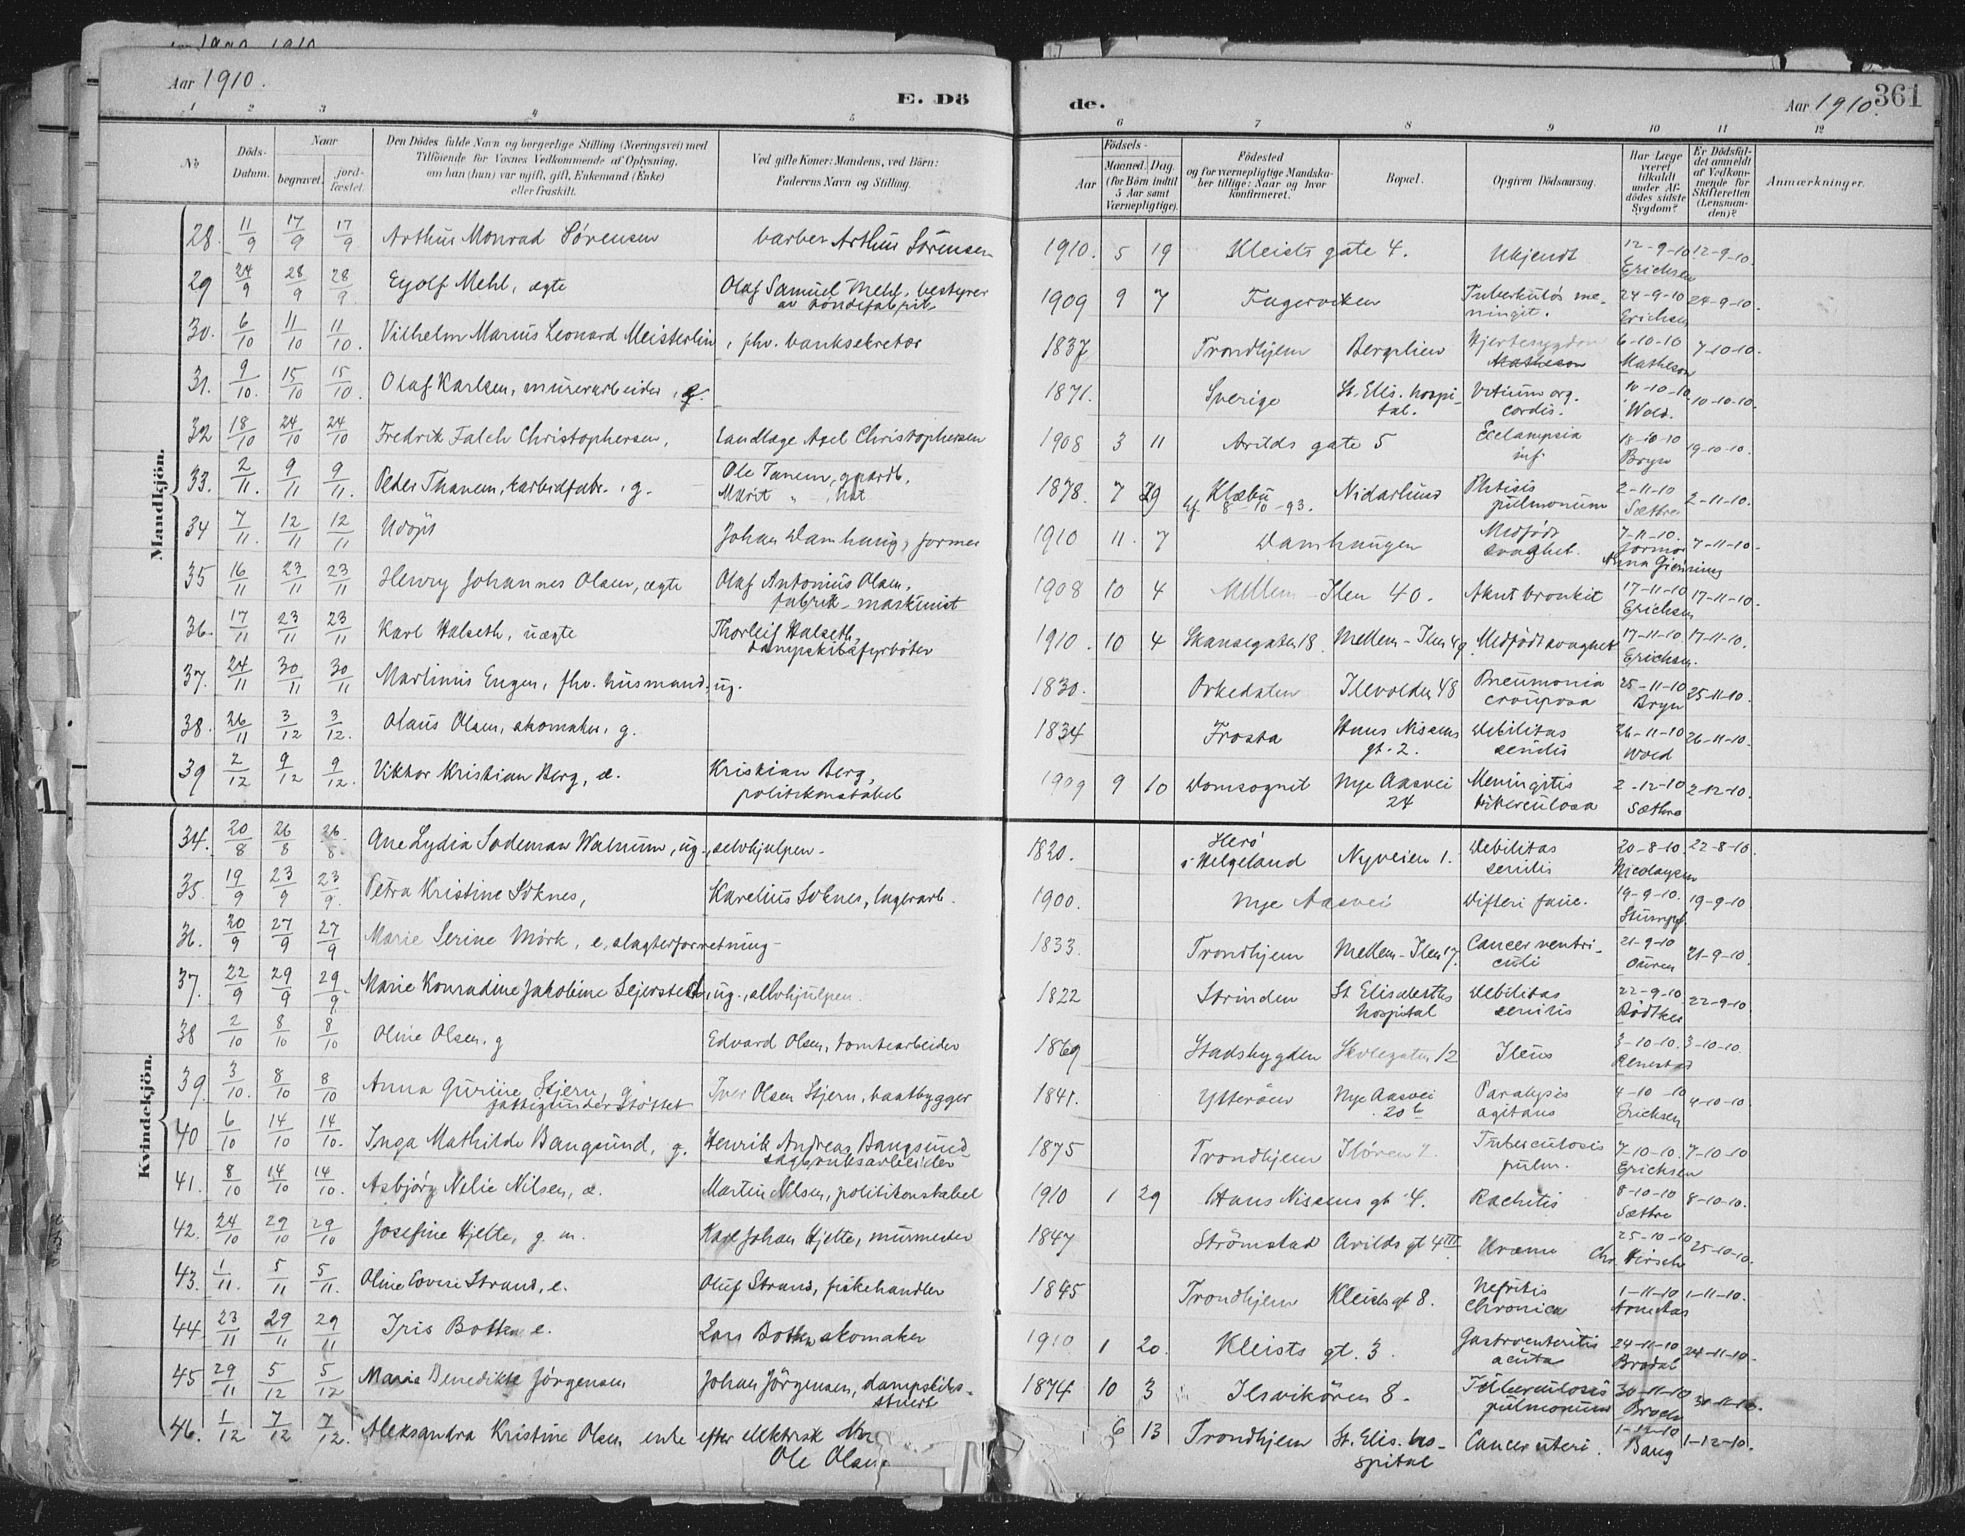 Aar 1910.
E. Dö
de.
Aar 1910.
361
1 2 3 4 5 6 7 8 9 10 11 12
No
Döds-Datum.
Naar
begravet.
jord-fæstet.
Den Dödes fulde Navn og borgerlige Stilling (Næringsvei) med
Tilföiende for Voxnes Vedkommende af Oplysning,
om han (hun) var ugift, gift, Enkemand (Enke)
eller fraskilt.
Ved gifte Koner: Mandens, ved Börn:
Faderens Navn og Stilling.
Födsels-
Aar
Maaned. Dag.
(for Börn indtil
5 Aar samt
Værnepligtige).
Födested
og for værnepligtige Mandska-
ber tillige: Naar og hvor
konfirmeret.
Bopæl.
Opgiven Dödsaarsag.
Har Læge
været
tilkaldt
under Af-
dödes sidste
Sygdom?
Er Dödsfal-
det anmeldt
af Vedkom-
mende for
Skifteretten
(Lensman-
den)?
Anmærkninger.
Mandkjön.
28. 11/9 17/9 17/9 Arthur Monrad Sørensen barber Arthur Sörensen 1910. 5 19 Kleists gate 4. Ukjendt 12-9-10 Erichsen 12-9-10.
29 24/9 28/9 28/9 Eyolf Mehl, ægte Olaf Samuel Mehl, bestyrer av töndefabrik 1909 9 7 Fagerviken Tuberkuløs me-ningit. 24-9-10 Erichsen 24-9-10.
30. 6/10 11/10 11/10. Vilhelm Marius Leonard Meisterlin, fhv. banksekretær 1837 Trondhjem Bergslien Hjertesygdom 6-10-10 Matheson 7-10-10.
31. 9/10. 15/10 15/10 Olaf Karlsen, murerarbeider, g. 1871. Sverige St. Elis. hospi-tal. Vitium org. cordis. 10-10-10 Wold. 10-10-10.
32 18/10 24/10 24/10 Fredrik Falch Christophersen, Tandlæge Axel Christophersen 1908 3 11 Arilds gate 5 Eclampsia inf. 18-10-10 Bryn 19-10-10.
33. 2/11. 9/11 9/11. Peder Thanem, karbidfabr., g. Ole Tanem, gaardb. Marit " 1878 7 29 Klæbu 8-10-93. Nidarlund Phtisis pulmonum 2-11-10 Sæthre 2-11-10.
34 7/11. 12/11 12/11 Udöpt Johan Damhaug, former 1910 11. 7 Damhaugen Medfödt svaghet. 7-11-10. Jormor Anna 7-11-10.
35 16/11 23/11 23/11 Henry Johannes Olsen, ægte Olaf Antonius Olsen, fabrik-maskinist 1908 10 4 Mellem-Ilen 40. Akut bronkit 17-11-10 Erichsen 17-11-10.
36. 17/11 23/11 23/11 Karl Halseth, uægte Thorleif Halseth, dampskibsfyrböter 1910. 10 4 Skansegaten 18. Mellem-Ilen 49. Medfödt svaghet 17-11-10 Erichsen. 17-11-10.
37. 24/11 30/11 30/11 Martinus Engen, fhv. husmand, ug. 1830. Orkedalen Ilevolden 48 Pneumonia crouposa 25-11-10 Bryn 25-11-10.
38. 26/11 3/12 3/12. Olaus Olsen, skomaker, g. 1834 Frosta Hans Nissens gt. 2. Debilitas senilis 26-11-10 Wold 26-11-10.
39 2/12 9/12 9/12. Viktor Kristian Berg, æ. Kristian Berg, politikonstabel 1909 9 10 Domsognet Nye Aasvei 24 Meningitis tuberculosa 2-12-10 Sæthre 2-12-10.
Kvindekjön.
34. 20/8 26/8 26/8. Ane Lydia Sodeman Walnum, ug., selvhjulpen. 1820. Herö i Helgeland Nyveien 1. Debilitas senilis 20-8-10. Nicolaysen 22-8-10.
35. 19/9 23/9 23/9. Petra Kristine Soknes, Karelius Soknes, lagerarb. 1900. Nye Aasvei Difteri fauc. 19-9-10. Stumpf. 19-9-10
36. 20/9 27/9 27/9 Marie Serine Mörk, e, slagterforretning 1833 Trondhjem Mellem-Ilen 17. Cancer ventri-culi 21-9-10 Ouren 21-9-10.
37. 22/9 29/9 29/9. Marie Konradine Jakobine Sejersted, ug., selvhjulpen. 1822 Strinden St Elisabeths hospital Debilitas senilis 22-9-10. Bödtker 22-9-10
38 2/10 8/10 8/10 Oline Olsen, g Edvard Olsen, tomtearbeider 1869 Stadsbygden Skolegaten 12 Ileus 3-10-10. 3-10-10.
39. 3/10. 8/10 8/10 Anna Gurine Stjern, g. fattigunderstöttet Iver Olsen Stjern, baatbygger 1841. Ytteröen Nye Aasvei 20b Paralysis agitans 4-10-10 Erichsen 4-10-10.
40 6/10 14/10 14/10. Inga Mathilde Bangsund, g. Henrik Andreas Bangsund sagbruksarbeider 1875 Trondhjem Ilören 7. Tuberculosis pulm. 7-10-10. Erichsen 7-10-10
41. 8/10 14/10 14/10. Asbjörg Nelie Nilsen, æ. Martin Nilsen, politikonstabel 1910 1 29 Hans Nissens gt 4. Rachitis 8-10-10 Sæthre 8-10-10.
42. 24/10 29/10 29/10 Josefine Hjelte, g. m. Karl Johan Hjelte, murmester 1847 Strömstad Arilds gt 4 III Uræmi 25-10-10 Chr. Hirsch 25-10-10.
43. 1/11. 5/11 5/11. Oline Strand, e. Oluf Strand, fiskehandler 1845 Trondhjem Kleists gt 8. Nefritis chronica 1-11-10 1-11-10.
44. 23/11 29/11 29/11 Iris Botten e. Lars Botten skomaker 1910 1 20. Kleists gt. 3. Gastroenteritis acuta 24-11-10 Bradal 24-11-10.
45 29/11 5/12 5/12 Marie Benedikte Jørgensen Johan Jörgensen, dampskibs-stuert 1874 10 3 Ilsvikören 8. Tuberculosis pulmonum 30-11-10 Broch 30-11-10.
46. 1/12 7/12 7/12. Aleksandra Kristine Olsen enke efter elektrisk Ole Olsen 6 13 Trondhjem St. Elis. ho-spital Cancer uteri. 1-12-10 Bang 1-12-10.